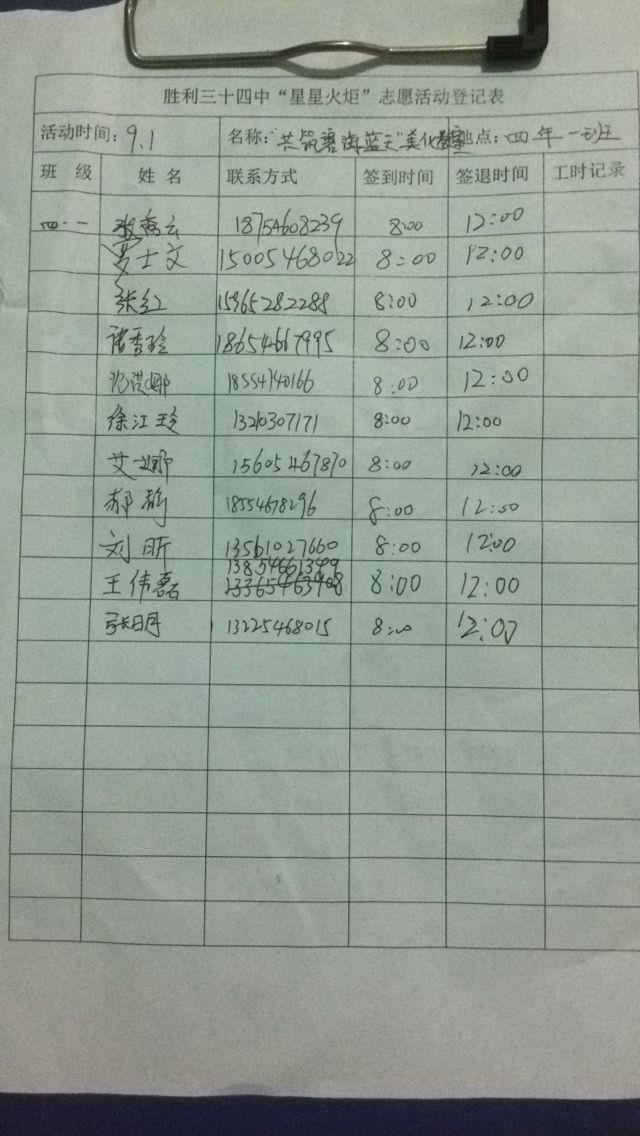 胜利三十四中“星星火炬”志愿活动登记表
活动时间：9.1 名称：“共筑碧海蓝天”美化 地点：四年一班
班 级 姓 名 联系方式 签到时间 签退时间 工时记录
四.一 18754608239 8:00 12:00
士文 15005468022 8:00 12:00
张红 15965282288 8:00 12:00
诸秀玲 18654667995 8:00 12:00
沈洪娜 18554740166 8:00 12:00
徐江玲 13210307171 8:00 12:00
艾娜 15605467870 8:00 12:00
郝静 18554678296 8:00 12:00
刘昕 13561027660 8:00 12:00
13854661349
王伟磊 13365463908 8:00 12:00
张明 13225468015 8:00 12:00